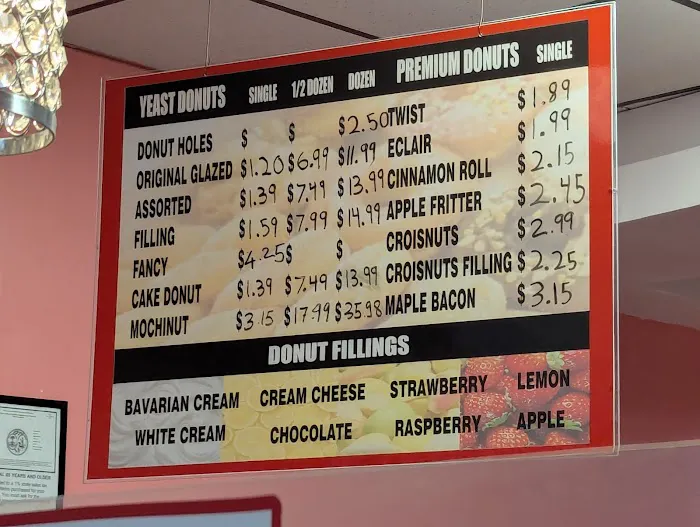 YEAST DONUTS SINGLE 1/2 DOZEN DOZEN
DONUT HOLES $ $ $2.50
ORIGINAL GLAZED $1.20 $6.99 $11.99
ASSORTED $1.39 $7.49 $13.99
FILLING $1.59 $7.99 $14.99
FANCY $4.25 $ $
CAKE DONUT $1.39 $7.49 $13.99
MOCHINUT $3.15 $17.99 $35.98
PREMIUM DONUTS SINGLE
TWIST $1.89
ECLAIR $1.99
CINNAMON ROLL $2.15
APPLE FRITTER $2.45
CROISNUTS $2.99
CROISNUTS FILLING $2.25
MAPLE BACON $3.15
DONUT FILLINGS
BAVARIAN CREAM CREAM CHEESE STRAWBERRY LEMON
WHITE CREAM CHOCOLATE RASPBERRY APPLE
YEARS AND OLDER